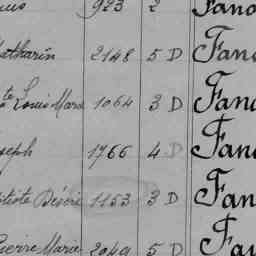 923 2 Fano
Matharin 2148 5 D Fano
te Louis Marie 1064 3 D Fano
seph 1766 4 D Fano
tiste Désiré 1153 3 D Fano
Pierre Marie 2049 5 D Fan